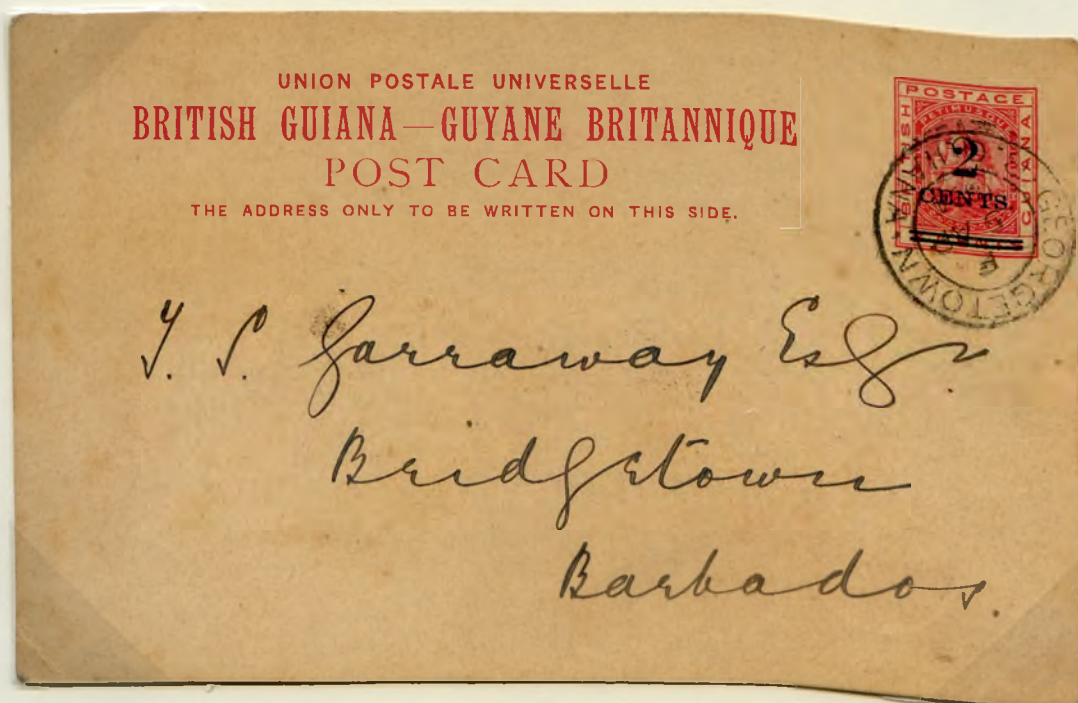 UNION POSTALE UNIVERSELLE
BRITISH GUIANA—GUYANE BRITANNIQUE
POST CARD
THE ADDRESS ONLY TO BE WRITTEN ON THIS SIDE.
POSTAGE
BRITISH
GUIANA
2
CENTS
GEORGETOWN
T. S. Garraway Esqr.
Bridgetown
Barbados.